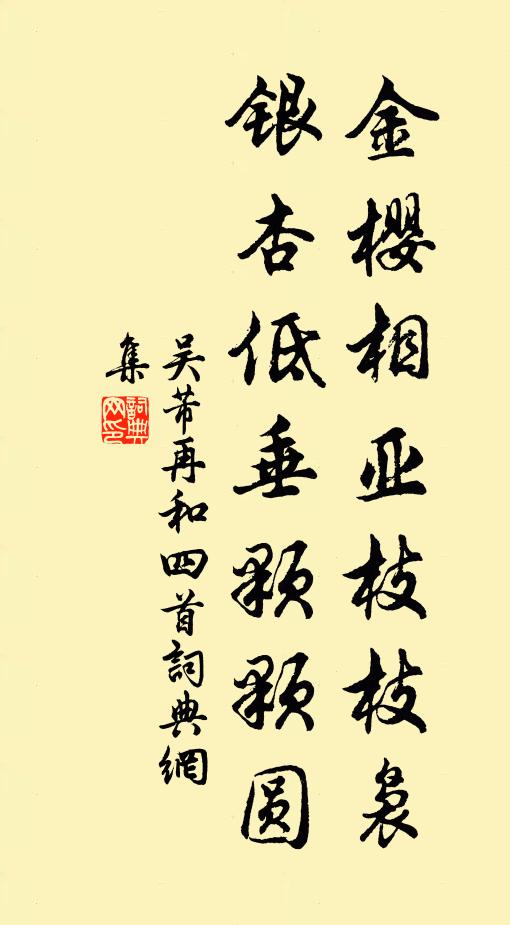 金櫻相亚枝枝裊
银杏低垂顆顆圆
吴芾再和四首詞典網
集
詞典
网印